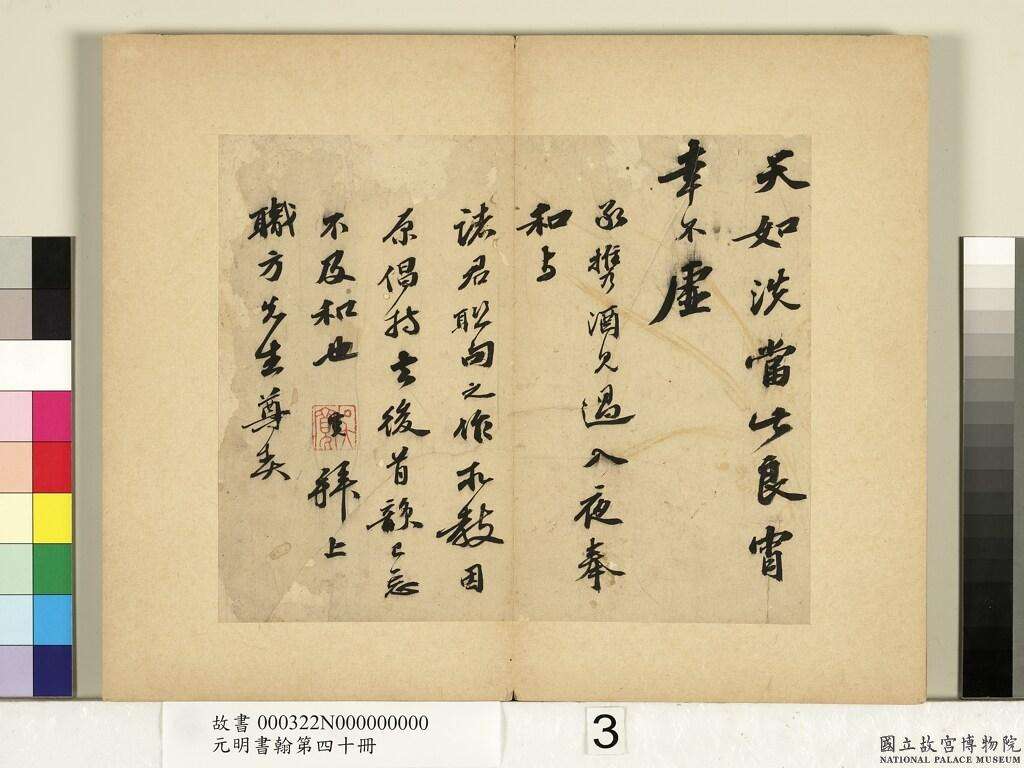 天如洗當此良宵
幸不虛
承攜酒見過入夜奉
和与
諸君聯句之作求教因
原倡持去後首韻已忘
不及和也 寬拜上
職方先生尊契
故書 000322N000000000
元明書翰第四十冊
3
國立故宮博物院
NATIONAL PALACE MUSEUM